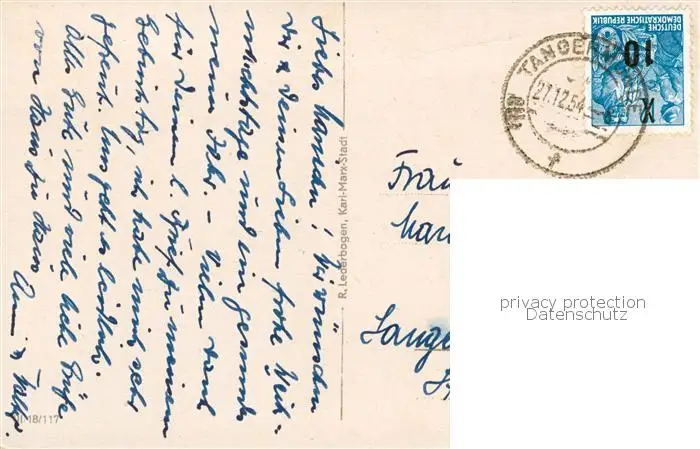 Liebes Mariechen! Wir wünschen
Dir & Deinen Lieben frohe Weih-
nachtstage und ein gesundes
neues Jahr. – Vielen Dank
für Deinen l. Gruß zu meinem
Geburtstag, ich habe mich sehr
gefreut. Uns geht es leidlich.
Alles Gute und viele liebe Grüße
von Haus zu Haus
R. Lederbogen, Karl-Marx-Stadt
18/117
DEUTSCHE
DEMOKRATISCHE REPUBLIK
10
TANGER
27.12.54
Frau
privacy protection
Datenschutz